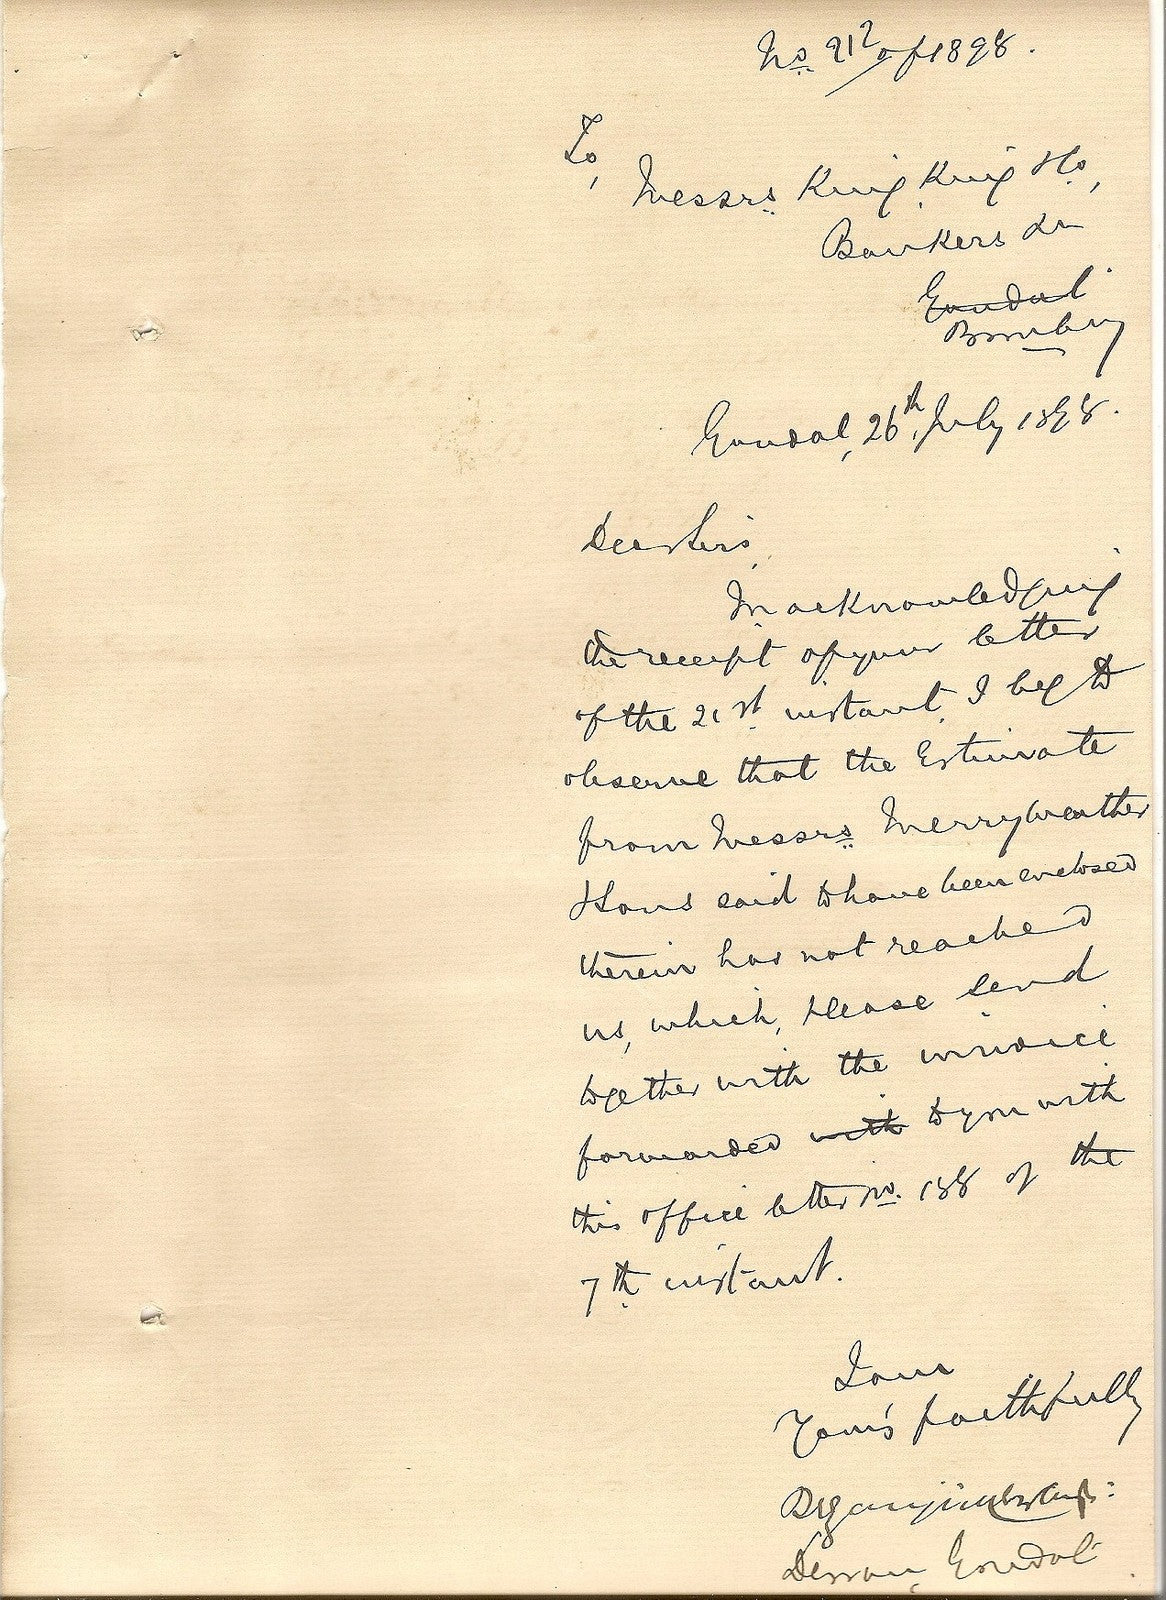 No. 212 of 1898.
To,
Messrs King, King & Co,
Bankers &c
Gondal
Bombay
Gondal, 26th July 1898.
Dear Sirs,
In acknowledging
the receipt of your letter
of the 21st instant, I beg to
observe that the Estimate
from Messrs Merryweather
& Sons said to have been enclosed
therein has not reached
us, which, please send
together with the invoice
forwarded with to you with
this office letter No. 188 of the
7th instant.
I am
Yours faithfully
Gondal